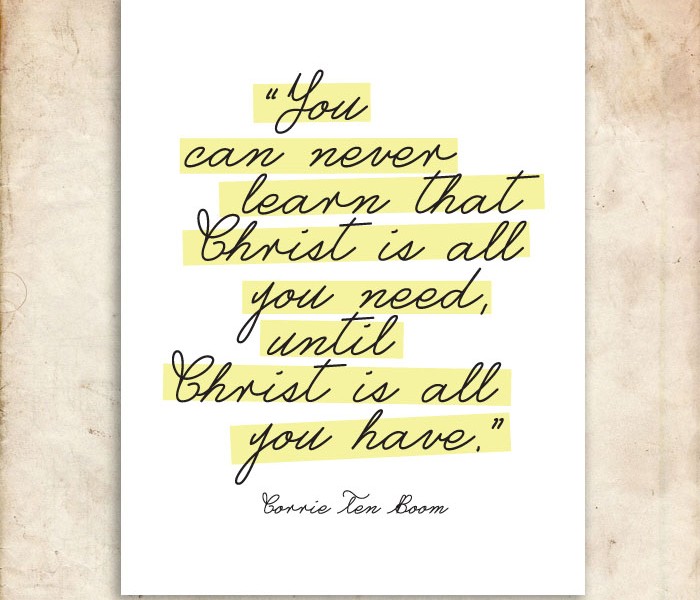 “You
can never
learn that
Christ is all
you need,
until
Christ is all
you have.”
Corrie Ten Boom